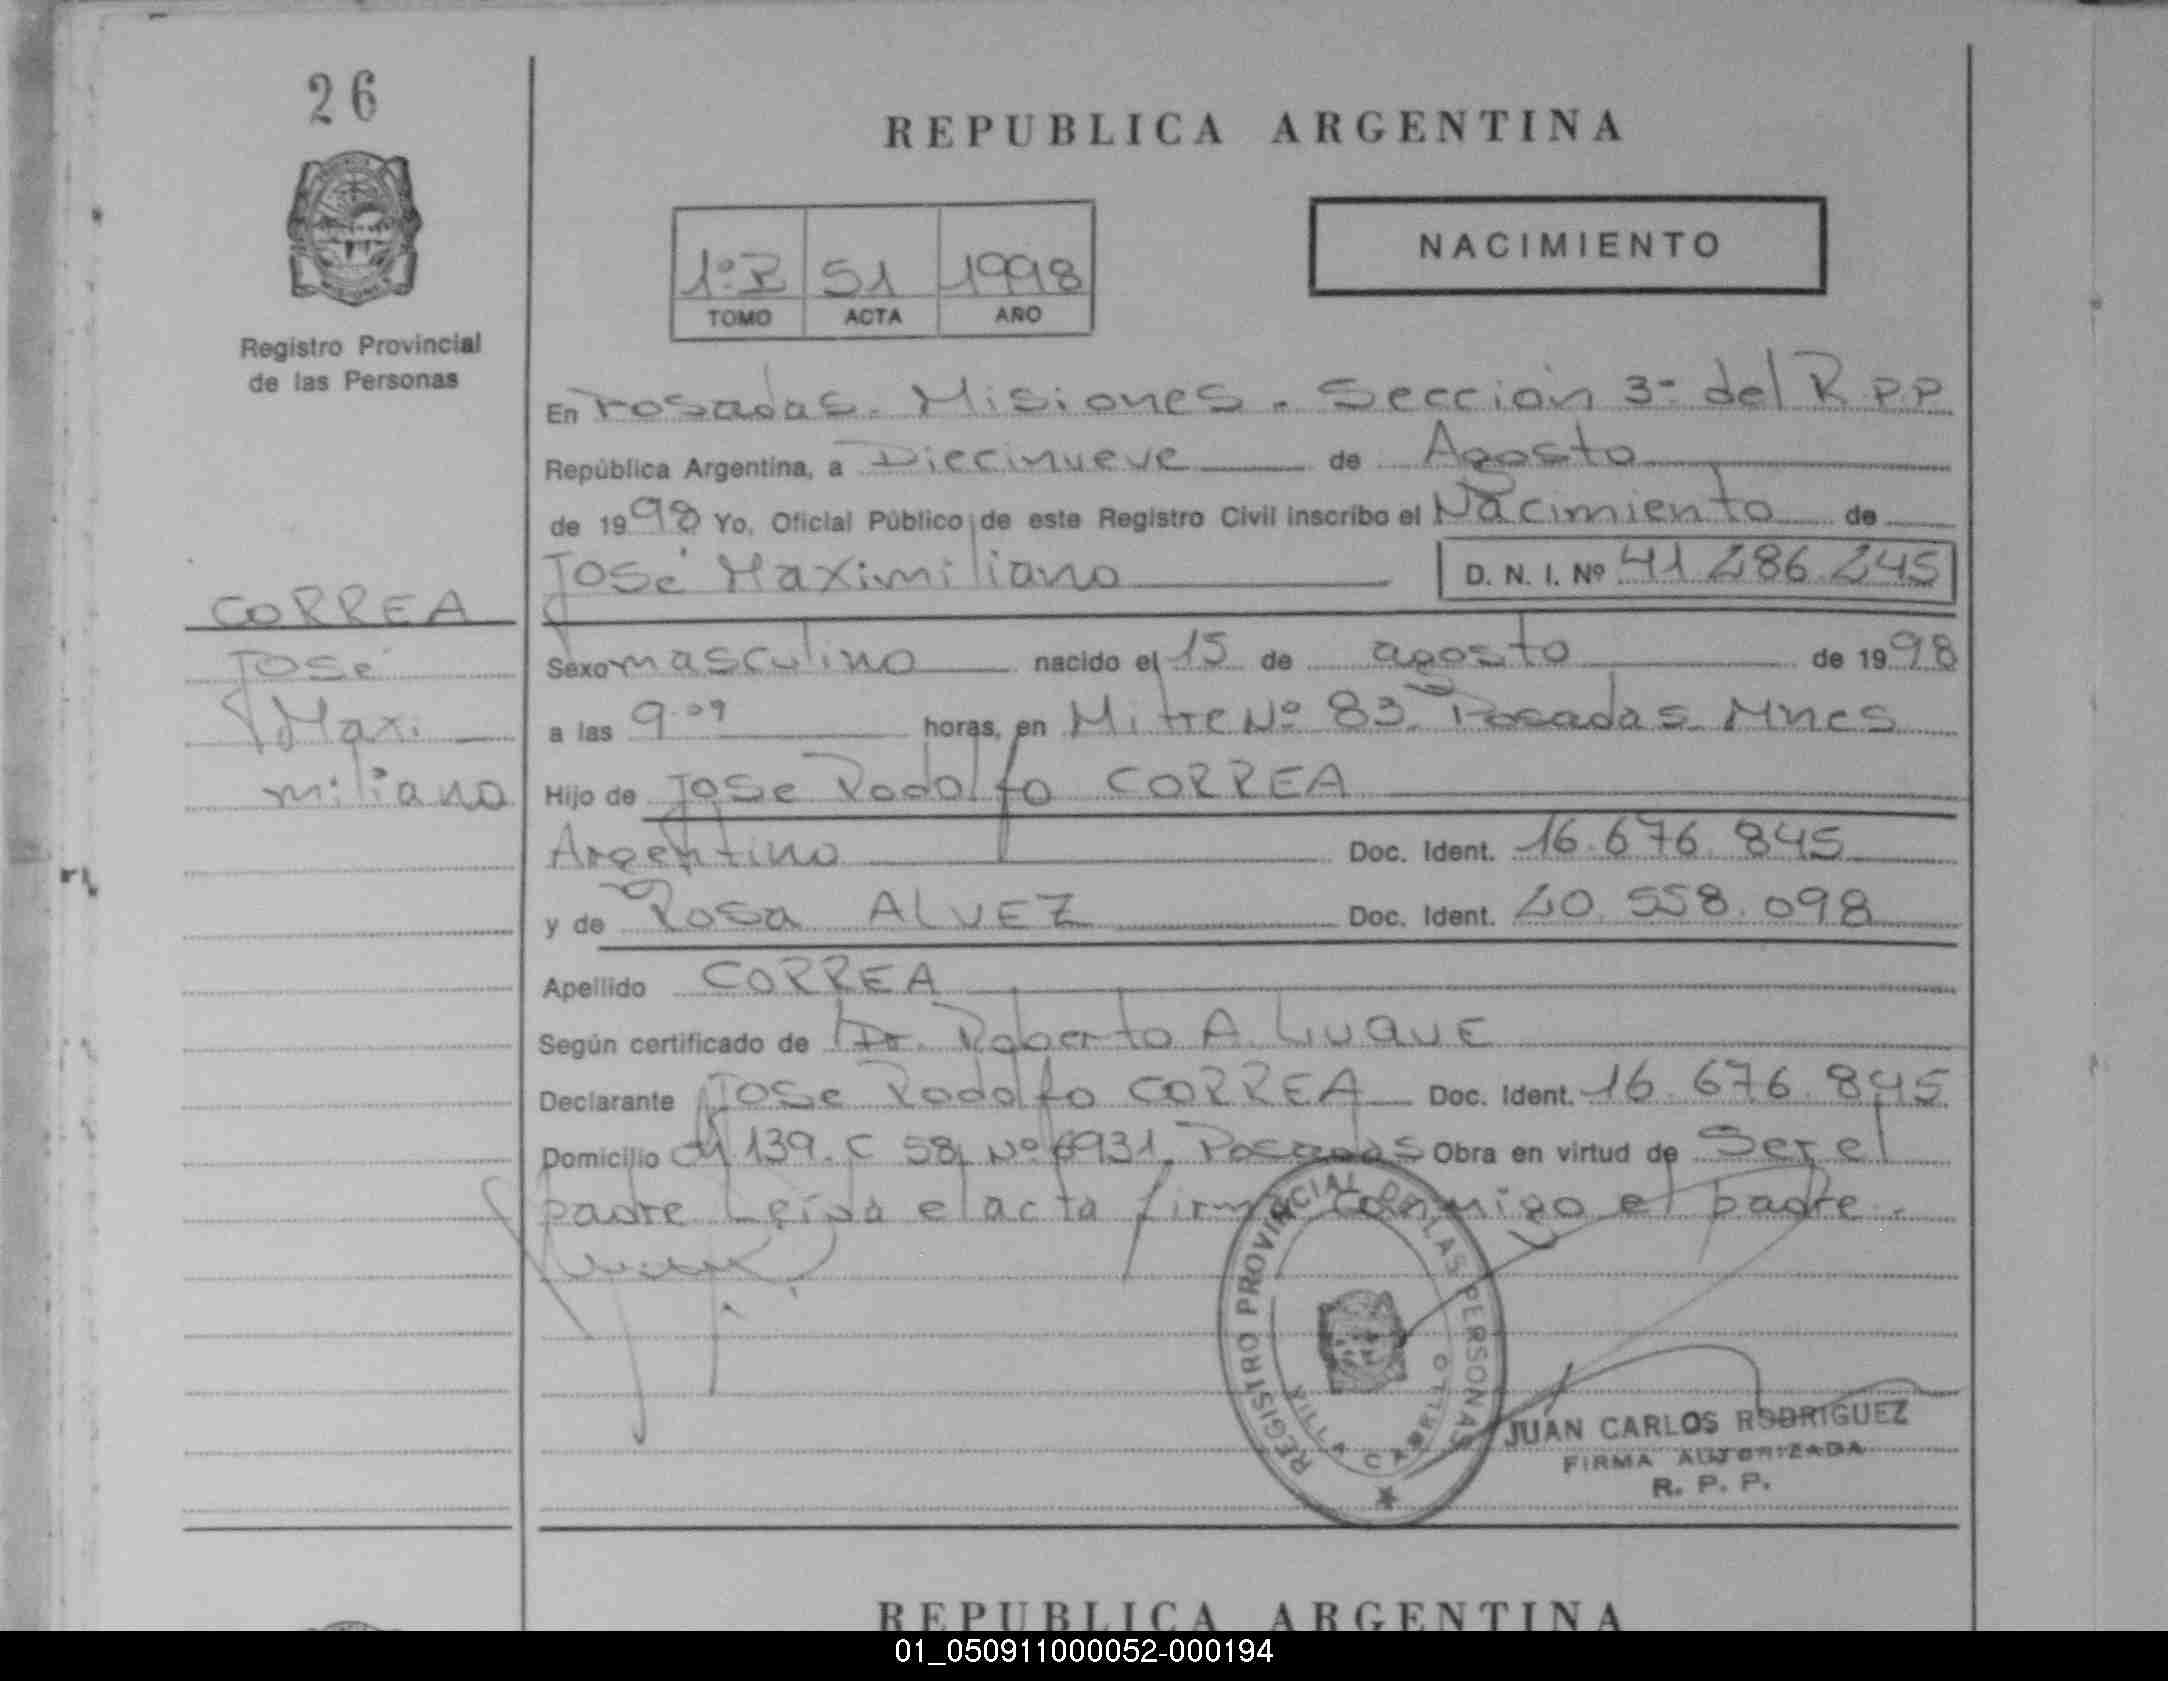 26
REPUBLICA ARGENTINA
NACIMIENTO
1º 51 1998
TOMO ACTA AÑO
Registro Provincial
de las Personas
En Posadas. Misiones. Sección 3º del R.P.P.
República Argentina, a Diecinueve de Agosto
de 1998 Yo, Oficial Público de este Registro Civil inscribo el Nacimiento de
José Maximiliano D. N. I. Nº 41 286.245
CORREA
José
Maxi
miliano
Sexo masculino nacido el 15 de agosto de 1998
a las 9.09 horas, en Mitre Nº 83. Posadas Mnes
Hijo de Jose Rodolfo CORREA
Argentino Doc. Ident. 16.676.845
y de Rosa ALVEZ Doc. Ident. 20.558.098
Apellido CORREA
Según certificado de Dr. Roberto A. LUQUE
Declarante Jose Rodolfo CORREA Doc. Ident. 16.676.845
Domicilio 139. C 58 Nº 6931. Posadas Obra en virtud de Ser el
padre Leída el acta firma conmigo el padre.
REGISTRO PROVINCIAL DE LAS PERSONAS
VILLA CABELLO
JUAN CARLOS RODRIGUEZ
FIRMA AUTORIZADA
R. P. P.
REPUBLICA ARGENTINA
01_050911000052-000194